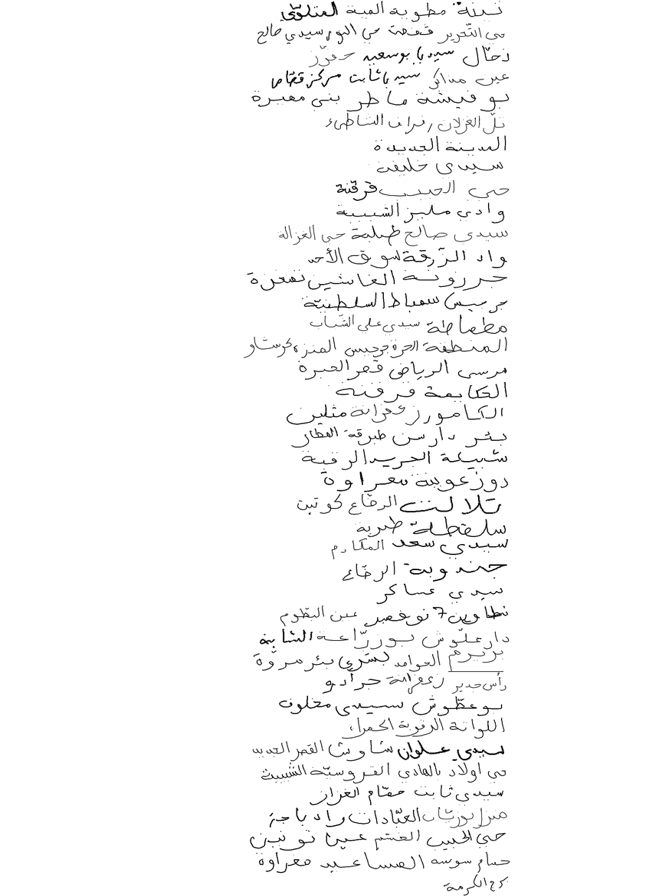 نبنة مطوية المية المتلوي
حي التحرير قفصة حي النور سيدي صالح
دخّال سيدي بوسعيد حفوز
عين مذاكر سيدي ثابت مركز قصّاص
بوفيشة ماطر بني مغيرة
تلّ الغزلان رفراف الشاطىء
المدينة الجديدة
سيدي خليفة
حي الحبيب قرقنة
وادي مليز الشبيبة
سيدي صالح طبلبة حي الغزالة
واد الزرقة سوق الأحد
جرزونة الغابشين نفغزة
جرجيس سمباط السلطنيّة
مطماطة سيدي علي الشباب
المنطقة الحرة جرجيس المنزه
مرسى الرياض قصر الحيرة
العكايمة قرقنة
الكامور زعفرانة متلين
بئر دارسن طبرقة القطار
شبيعة الجريد الرقبة
دوز عوينة مغراوة
تلالت الرضاع كوتين
سلقطة طبربة
سيدي سعد المكارم
جندوبة الرضاع
سيدي عساكر
تطاوين 7 نوفمبر عين البطوم
دار علّوش بورزّاعة الشابة
برنرم العوامد يسري بئر مروّة
رأس جدير زعفرانة جرادو
بوعطّوش سيدي مخلوف
اللواتة الرقوبة الحمراء
سيدي علوان شاوش القصر الجديد
حي أولاد بالهادي الفروسيّة الشبيبة
سيدي ثابت مقام الغزان
منزل بورقيبة العبّادات رادباجة
حي الحبيب الغشم عين توبنين
حمام سوسة المساعيد مغراوة
كرم الكرمة